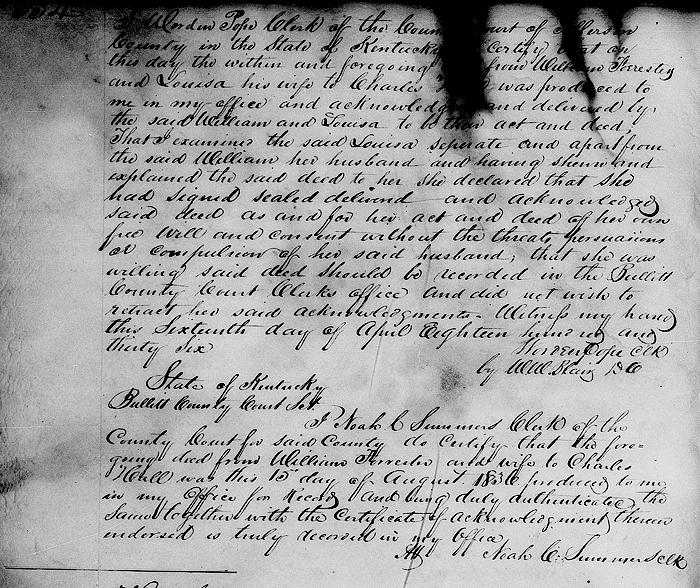 I Worden Pope Clerk of the County Court of Jefferson
County in the State of Kentucky certify that on
this day the within and foregoing from William Forrester
and Louisa his wife to Charles was produced to
me in my office and acknowledged and delivered by
the said William and Louisa to be their act and deed,
That I examined the said Louisa seperate and apart from
the said William her husband and having shewn and
explained the said deed to her she declared that she
had signed sealed delivered and acknowledged
said deed as and for her act and deed of her own
free Will and consent without the threats, persuasions
or compulsion of her said husband, that she was
willing said deed should be recorded in the Bullitt
County Court Clerks office and did not wish to
retract her said acknowledgments. Witness my hand
this Sixteenth day of April Eighteen hundred and
thirty Six
Worden Pope Clk
by
State of Kentucky
Bullitt County Court Sct.
I Noah C Summers Clerk of the
County Court for said County do Certify that the fore=
going deed from William Forrester and wife to Charles
Hull was this 15 day of August 1836 produced to me
in my Office for Record and being duly authenticated the
Same together with the Certificate of acknowledgment thereon
endorsed is truly recorded in my Office
Att Noah C. Summers clk